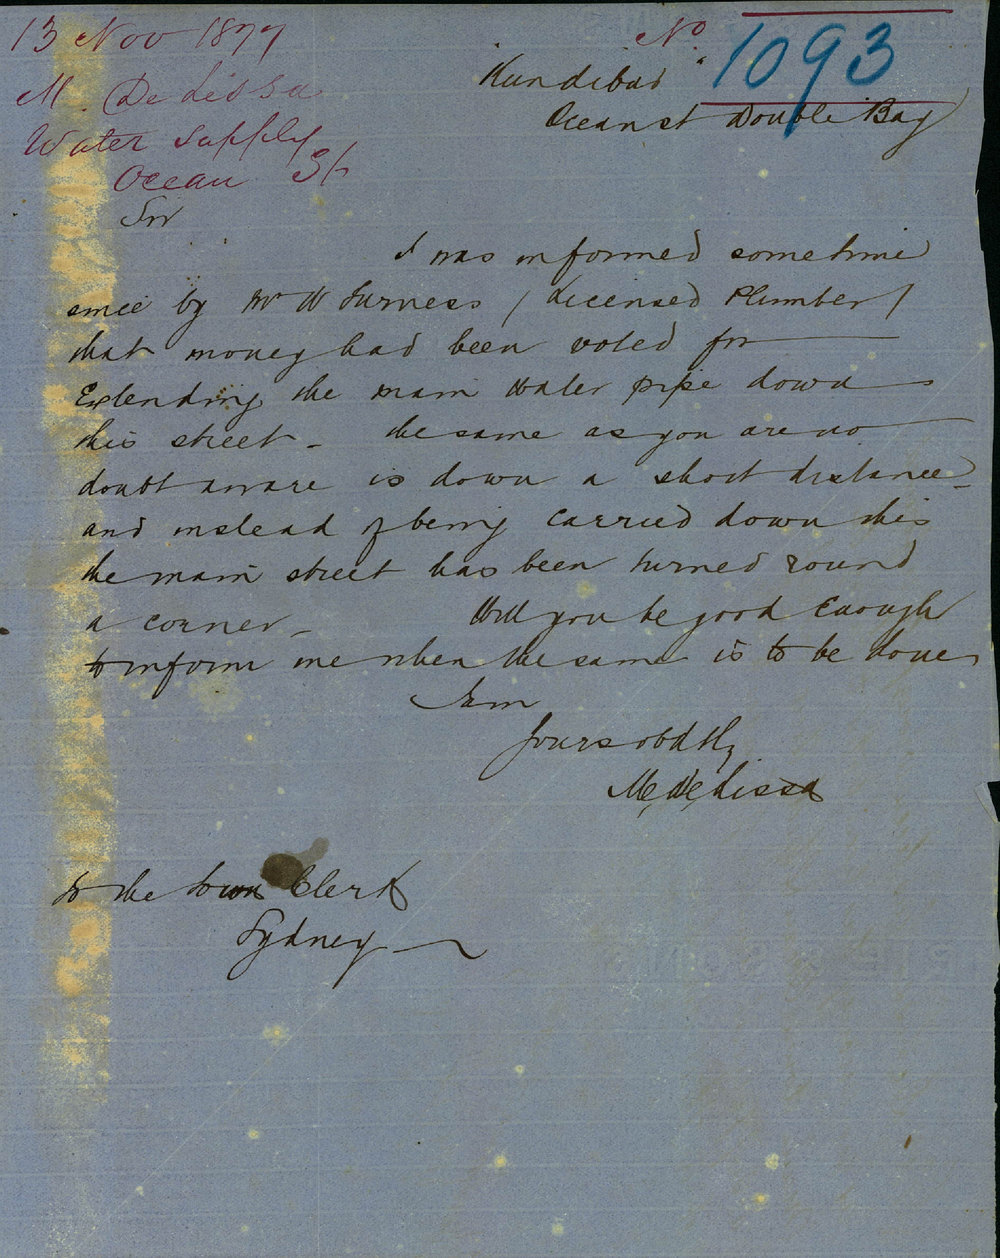 13 Nov 1877
M. De Lissa
Water Supply
Ocean St
No 1093
Kundibad
Ocean st Double Bay
Sir
I was informed sometime
since by Mr W Furness / Licensed Plumber /
that money had been voted for
Extending the main Water pipe down
this street - the same as you are no
doubt aware is down a short distance -
and instead of being carried down this
the main street has been turned round
a corner - Will you be good Enough
to inform me when the same is to be done
I am
Yours obdtly
M, De, Lissa
To the Town Clerk
Sydney